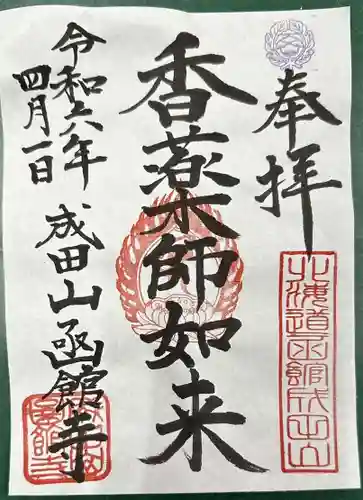 奉拝
北海道函館成田山
香薬師如来
令和六年
四月一日
成田山函館寺